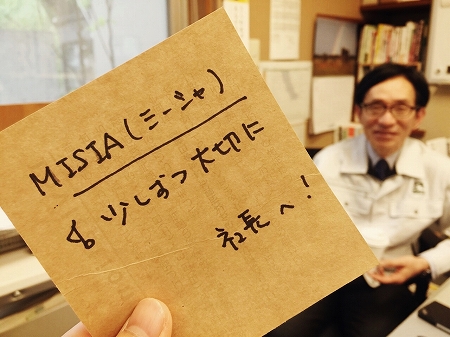 MISIA(ミージャ)
も少しずつ大切に
社長へ!